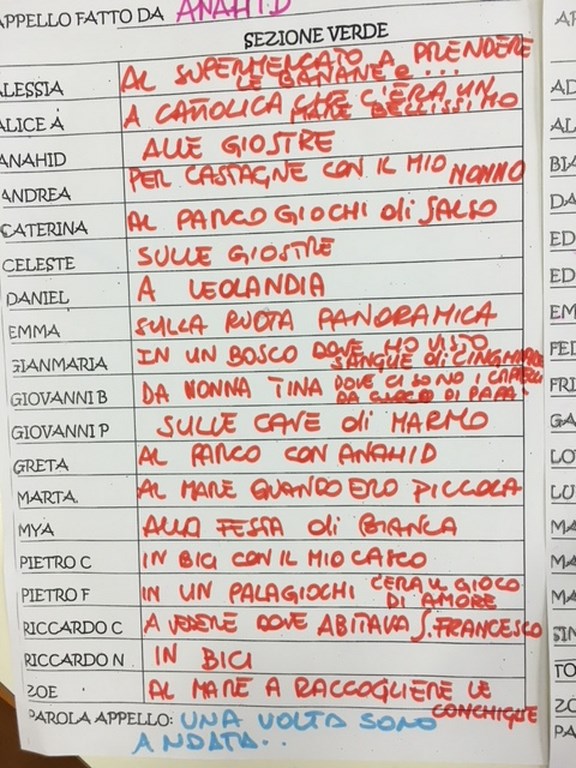 APPELLO FATTO DA ANAHID
SEZIONE VERDE
ALESSIA AL SUPERMERCATO A PRENDERE
LE BANANE e...
ALICE A A CATTOLICA CHE C'ERA UN
MARE BELLISSIMO
ANAHID ALLE GIOSTRE
ANDREA PER CASTAGNE CON IL MIO NONNO
CATERINA AL PARCO GIOCHI di SALSO
CELESTE SULLE GIOSTRE
DANIEL A LEOLANDIA
EMMA SULLA RUOTA PANORAMICA
GIANMARIA IN UN BOSCO DOVE HO VISTO
SANGUE di CINGHIALE
GIOVANNI B DA NONNA TINA DOVE CI SONO I CAPELLI
DA CUOCO DI PAPA'
GIOVANNI P SULLE CAVE di MARMO
GRETA AL PARCO CON ANAHID
MARTA. AL MARE QUANDO ERO PICCOLA
MYA ALLA FESSA di BIANCA
PIETRO C IN BICI CON IL MIO CASCO
PIETRO F IN UN PALAGIOCHI C'ERA IL GIOCO
DI AMORE
RICCARDO C A VEDERE DOVE ABITAVA S. FRANCESCO
RICCARDO N IN BICI
ZOE AL MARE A RACCOGLIERE LE
CONCHIGLIE
PAROLA APPELLO: UNA VOLTA SONO
ANDATA..
AP
AD
AL
BIA
DA
ED
ED
EM
FED
FRI
GA
LO
LU
MA
MA
MA
SIN
TO
ZO
PA